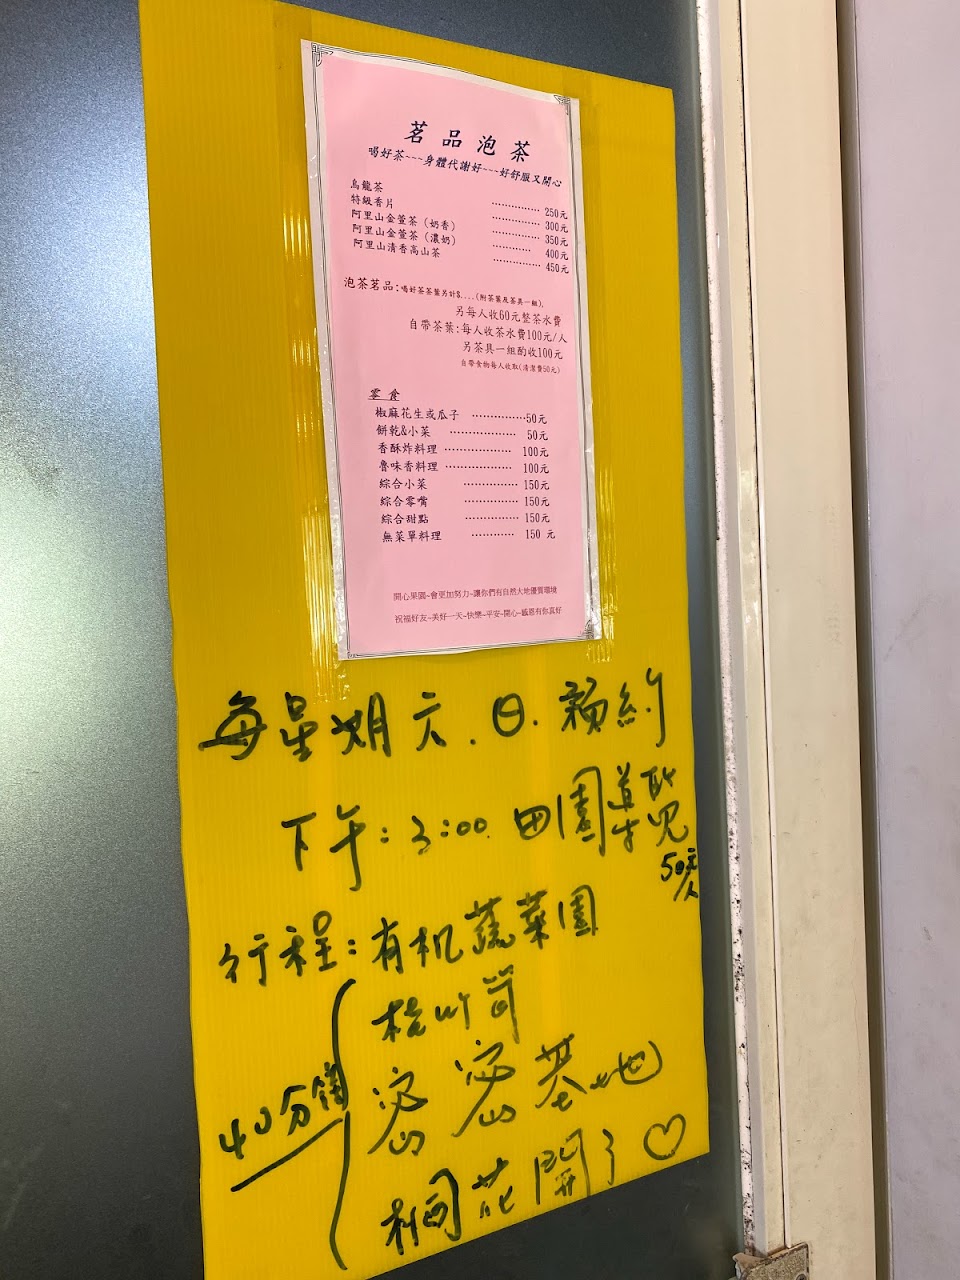 茗品泡茶
喝好茶~~~身體代謝好~~~好舒服又開心
烏龍茶 ............... 250元
特級香片 ............... 300元
阿里山金萱茶（奶香） ............... 350元
阿里山金萱茶（濃奶） ............ 400元
阿里山清香高山茶 ............... 450元
泡茶茗品:喝好茶茶葉另計$....(附茶葉及茶具一組),
另每人收60元整茶水費
自帶茶葉:每人收茶水費100元/人
另茶具一組酌收100元
自帶食物每人收取(清潔費50元)
零食
椒麻花生或瓜子 ..................50元
餅乾&小菜 .................. 50元
香酥炸料理 .................. 100元
魯味香料理 .................. 100元
綜合小菜 ............... 150元
綜合零嘴 ............... 150元
綜合甜點 ............... 150元
無菜單料理 ............ 150 元
開心果園~會更加努力~讓你們有自然大地優質環境
祝福好友~美好一天~快樂~平安~開心~感恩有你真好
每星期六.日.預約
下午:3:00 田園導覽
50元/人
行程:有机蔬菜園
桂竹筍
40分鐘
密密基地
桐花開了♡